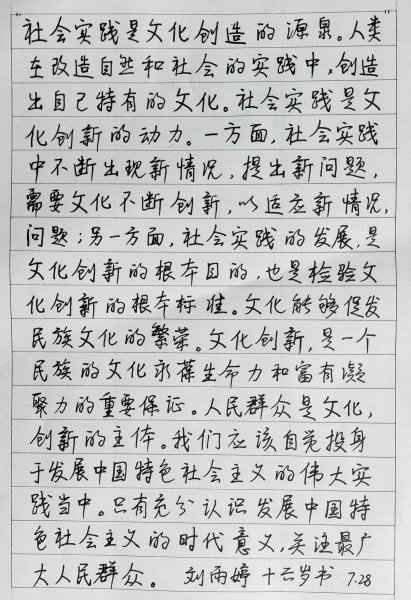 社会实践是文化创造的源泉。人类
在改造自然和社会的实践中,创造
出自己特有的文化。社会实践是文
化创新的动力。一方面,社会实践
中不断出现新情况,提出新问题,
需要文化不断创新,以适应新情况,
问题;另一方面,社会实践的发展,是
文化创新的根本目的,也是检验文
化创新的根本标准。文化能够促发
民族文化的繁荣。文化创新,是一个
民族的文化永葆生命力和富有凝
聚力的重要保证。人民群众是文化,
创新的主体。我们应该自觉投身
于发展中国特色社会主义的伟大实
践当中。只有充分认识发展中国特
色社会主义的时代意义,关注最广
大人民群众。 刘雨婷 十六岁书 7.28